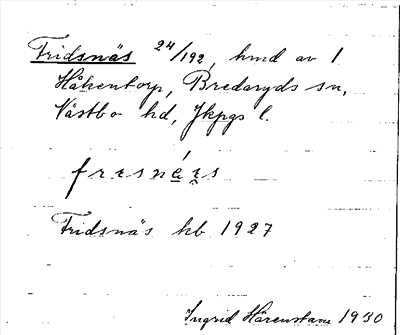 Fridsnäs 24/192, hmd av 1
Håkentorp, Bredaryds sn,
Västbo hd, Jkpgs l.
Fridsnäs hb 1927
Ingrid Härenstam 1930